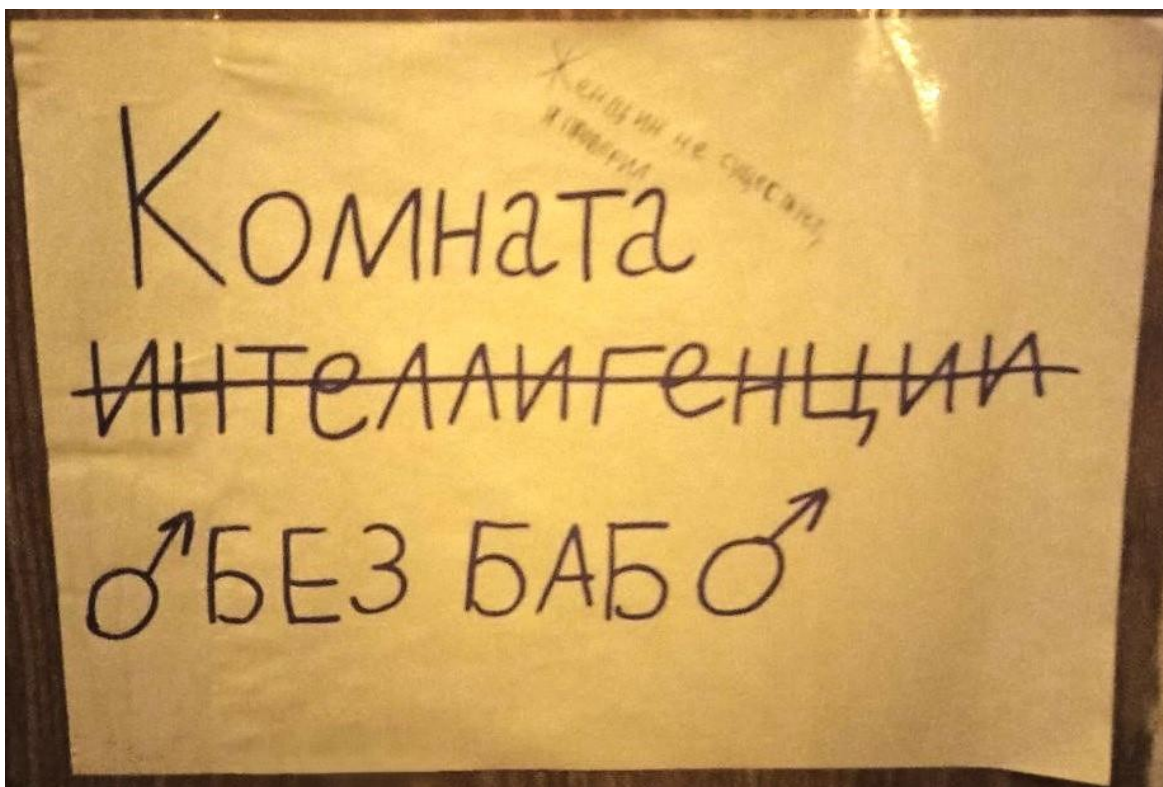 Женщин не существует,
я проверил
Комната
интеллигенции
♂БЕЗ БАБ♂